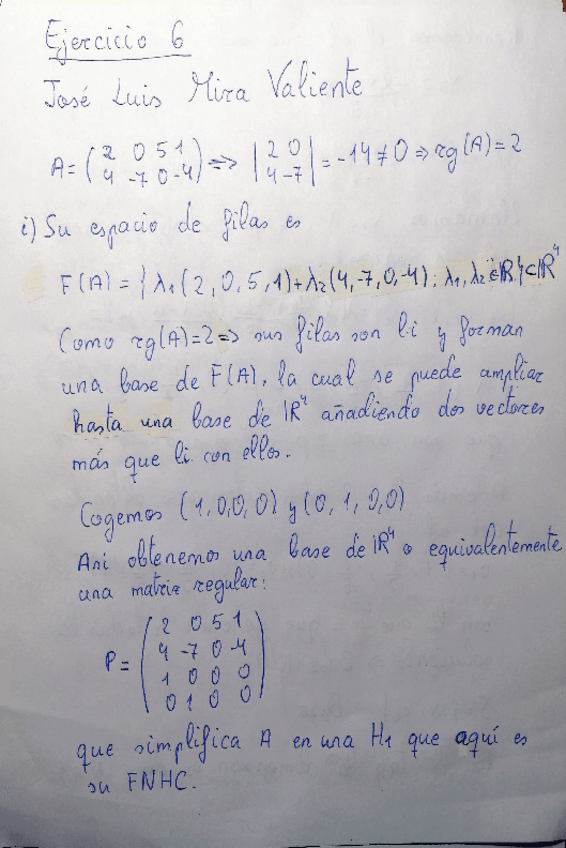 Ejercicio 6
José Luis Mira Valiente
A = ( 2 0 5 1 / 4 -7 0 -4 ) ⇒ | 2 0 / 4 -7 | = -14 ≠ 0 ⇒ rg(A) = 2
i) Su espacio de filas es
F(A) = { λ1(2, 0, 5, 1) + λ2(4, -7, 0, -4) ; λ1, λ2 ∈ ℝ } ⊂ ℝ⁴
Como rg(A) = 2 ⇒ sus filas son l.i y forman
una base de F(A), la cual se puede ampliar
hasta una base de ℝ⁴ añadiendo dos vectores
más que li con ellos.
Cogemos (1, 0, 0, 0) y (0, 1, 0, 0)
Así obtenemos una base de ℝ⁴ o equivalentemente
una matriz regular:
2 0 5 1
4 -7 0 -4
P = 1 0 0 0
0 1 0 0
que simplifica A en una H1 que aquí es
su FNHC.